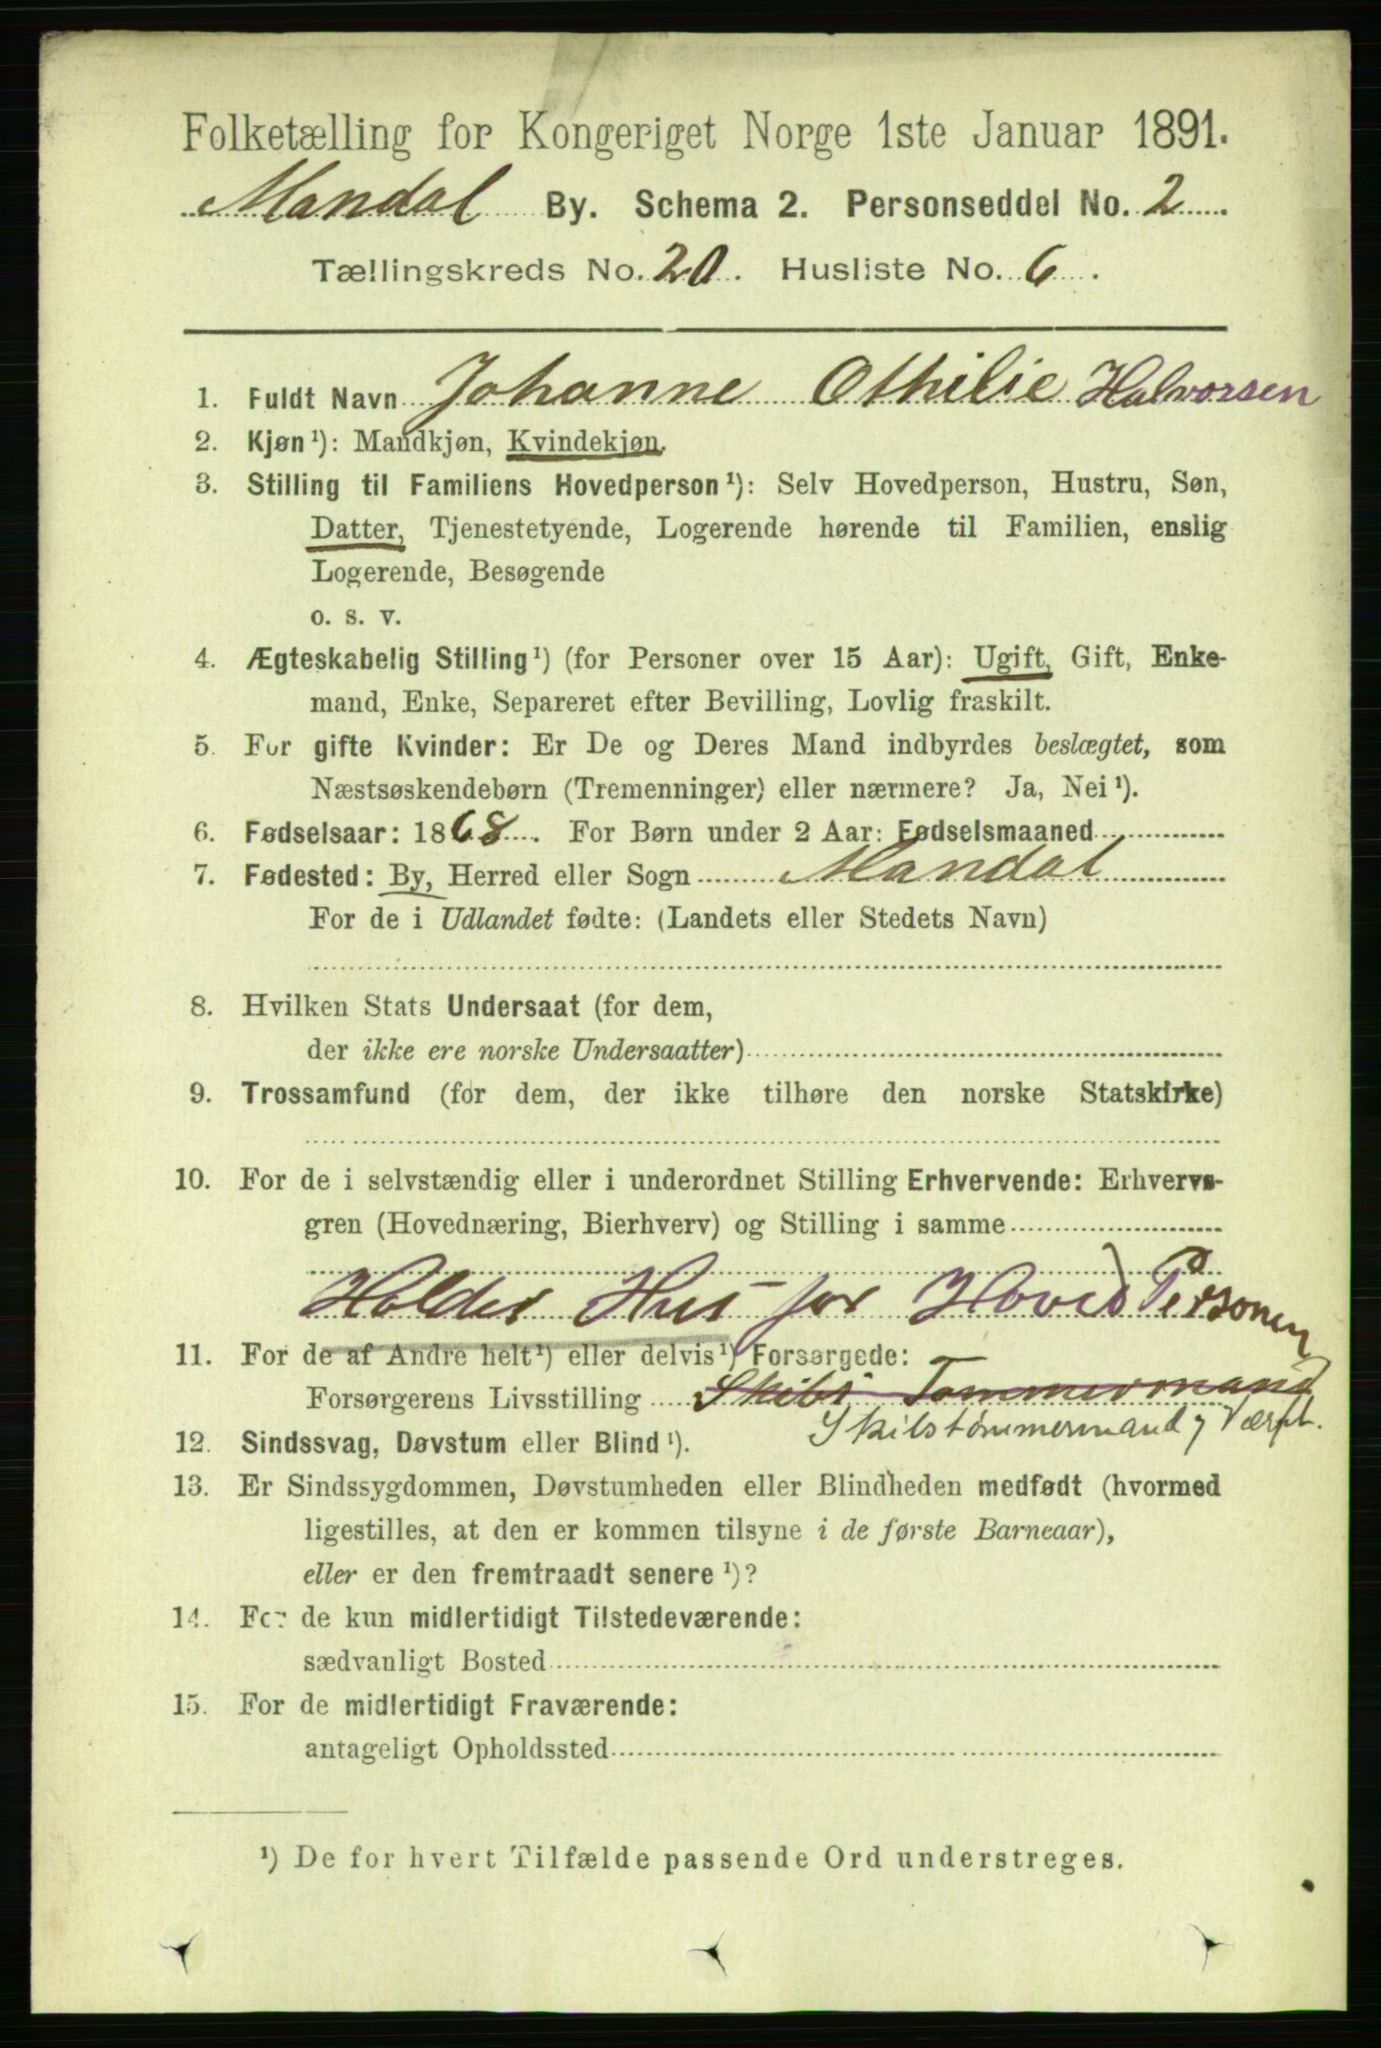 Folketælling for Kongeriget Norge 1ste Januar 1891.
Mandal By. Schema 2. Personseddel No. 2
Tællingskreds No. 20. Husliste No. 6.
1. Fuldt Navn Johanne Othilie Halvorsen
2. Kjøn¹): Mandkjøn, Kvindekjøn.
3. Stilling til Familiens Hovedperson¹): Selv Hovedperson, Hustru, Søn,
Datter, Tjenestetyende, Logerende hørende til Familien, enslig
Logerende, Besøgende
o. s. v.
4. Ægteskabelig Stilling¹) (for Personer over 15 Aar): Ugift, Gift, Enke-
mand, Enke, Separeret efter Bevilling, Lovlig fraskilt.
5. For gifte Kvinder: Er De og Deres Mand indbyrdes beslægtet, som
Næstsøskendebørn (Tremenninger) eller nærmere? Ja, Nei¹).
6. Fødselsaar: 1868. For Børn under 2 Aar: Fødselsmaaned
7. Fødested: By, Herred eller Sogn Mandal
For de i Udlandet fødte: (Landets eller Stedets Navn)
8. Hvilken Stats Undersaat (for dem,
der ikke ere norske Undersaatter)
9. Trossamfund (for dem, der ikke tilhøre den norske Statskirke)
10. For de i selvstændig eller i underordnet Stilling Erhvervende: Erhvervs-
gren (Hovednæring, Bierhverv) og Stilling i samme
Holder Hus for Hoved Personen
11. For de af Andre helt¹) eller delvis¹) Forsørgede:
Forsørgerens Livsstilling Skibs Tømmermand
Skibstømmermand
12. Sindssvag, Døvstum eller Blind¹).
13. Er Sindssygdommen, Døvstumheden eller Blindheden medfødt (hvormed
ligestilles, at den er kommen tilsyne i de første Barneaar),
eller er den fremtraadt senere¹)?
14. For de kun midlertidigt Tilstedeværende:
sædvanligt Bosted
15. For de midlertidigt Fraværende:
antageligt Opholdssted
¹) De for hvert Tilfælde passende Ord understreges.